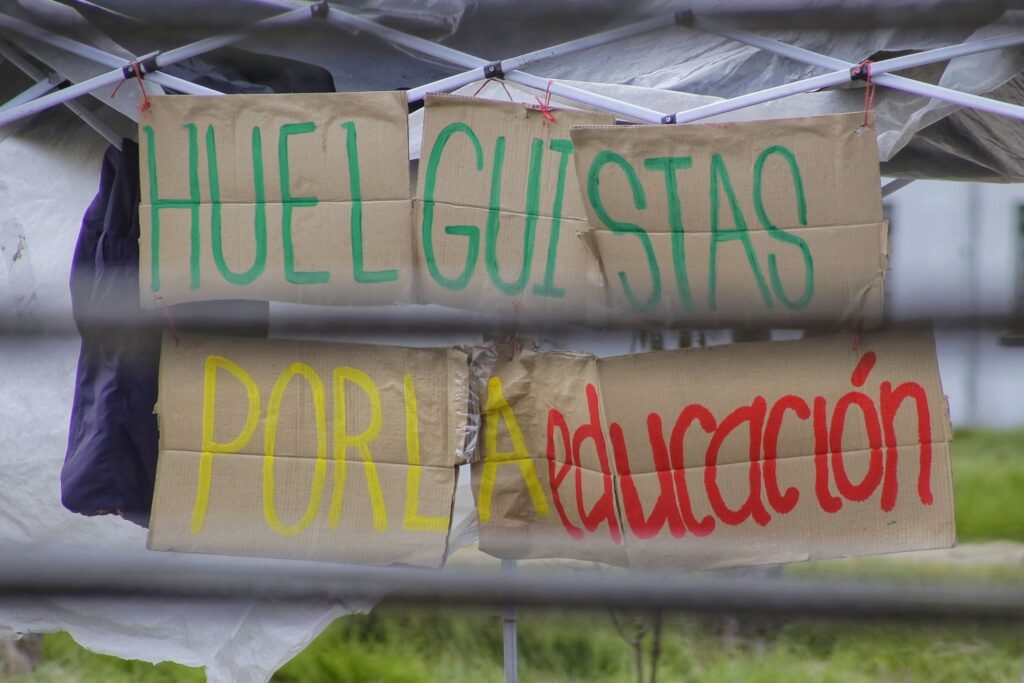 HUELGUISTAS
POR LA educación